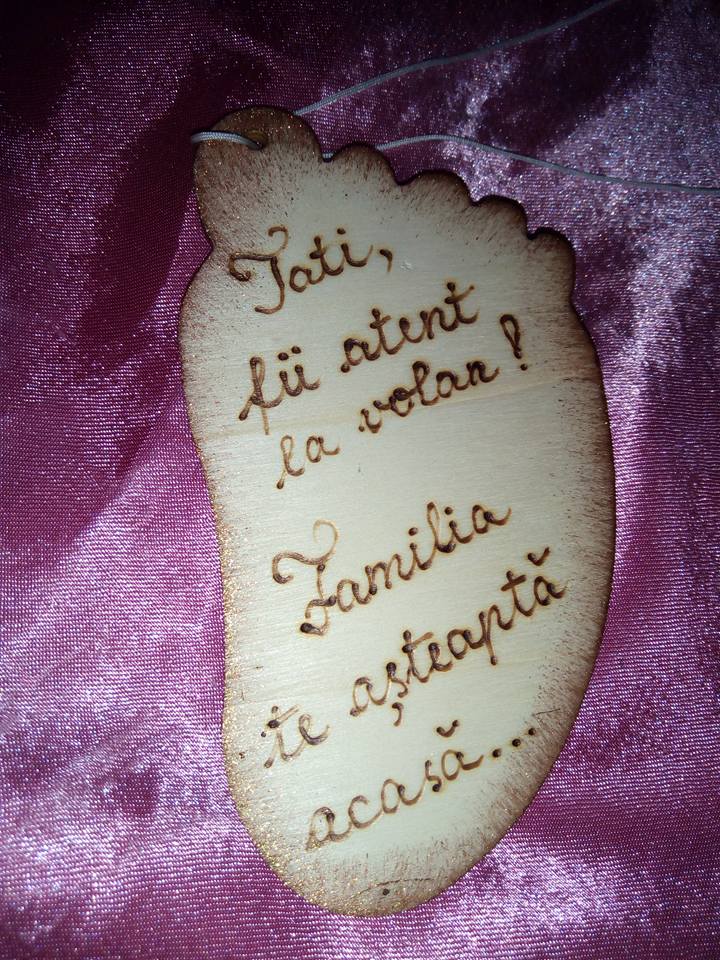 Tati,
fii atent
la volan!
Familia
te așteaptă
acasă...